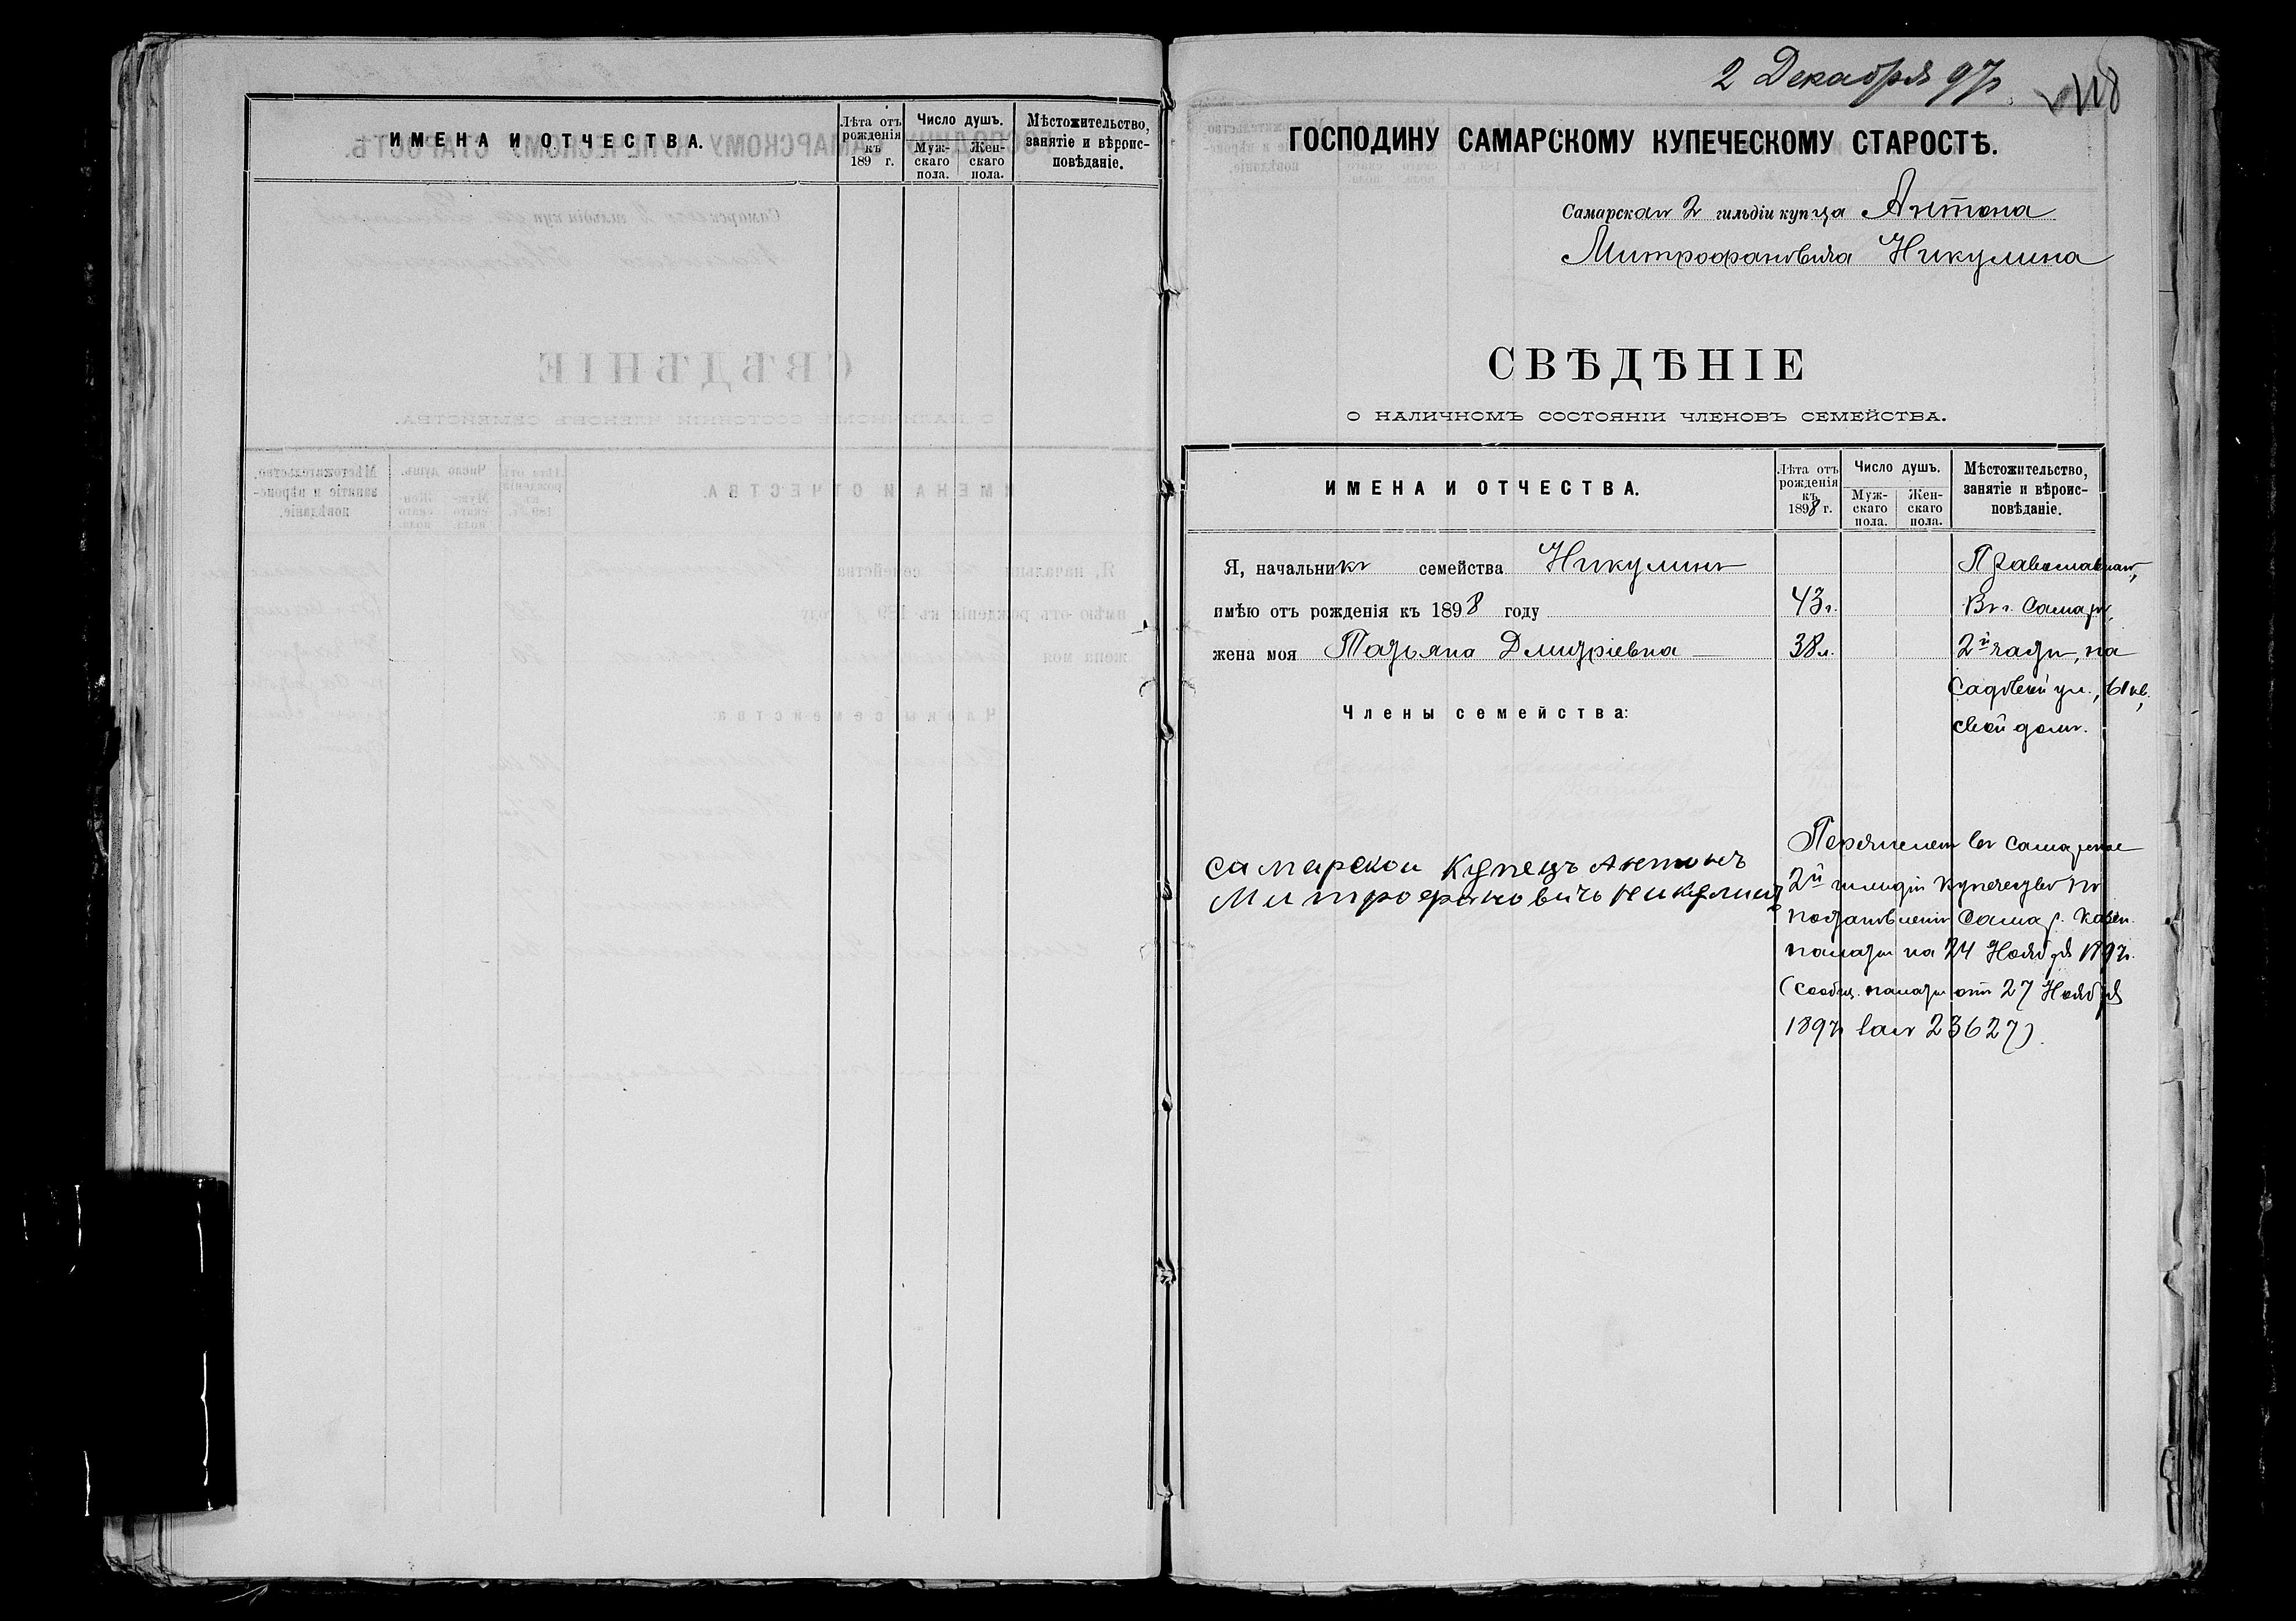 ИМЕНА И ОТЧЕСТВА.
Лѣта отъ рожденія къ 189 г.
Число душъ.
Муж-скаго пола.
Жен-скаго пола.
Мѣстожительство, занятіе и вѣроис-повѣданіе.
2 Декабря 97 г.
118
ГОСПОДИНУ САМАРСКОМУ КУПЕЧЕСКОМУ СТАРОСТѢ.
Самарскаго 2 гильдіи купца Антона
Митрофановича Никулина
СВѢДѢНІЕ
О НАЛИЧНОМЪ СОСТОЯНІИ ЧЛЕНОВЪ СЕМЕЙСТВА.
ИМЕНА И ОТЧЕСТВА.
Лѣта отъ рожденія къ 1898 г.
Число душъ.
Муж-скаго пола.
Жен-скаго пола.
Мѣстожительство, занятіе и вѣроис-повѣданіе.
Я, начальникъ семейства Никулинъ
имѣю отъ рожденія къ 1898 году 43 г.
жена моя Татьяна Дмитріевна 38 л.
Православнаго,
Въ г. Самарѣ,
2й части, на
Садовой ул., 61 кв.,
свой домъ.
Члены семейства:
Самарской Купецъ Антонъ
Митрофановичъ Никулинъ
Перечисленъ въ Самарское
2й гильдіи купечество по
постановленію Самар. Казен.
палаты на 24 Ноября 1897 г.
(сообщ. палаты отъ 27 Ноября
1897 г. за № 23627)